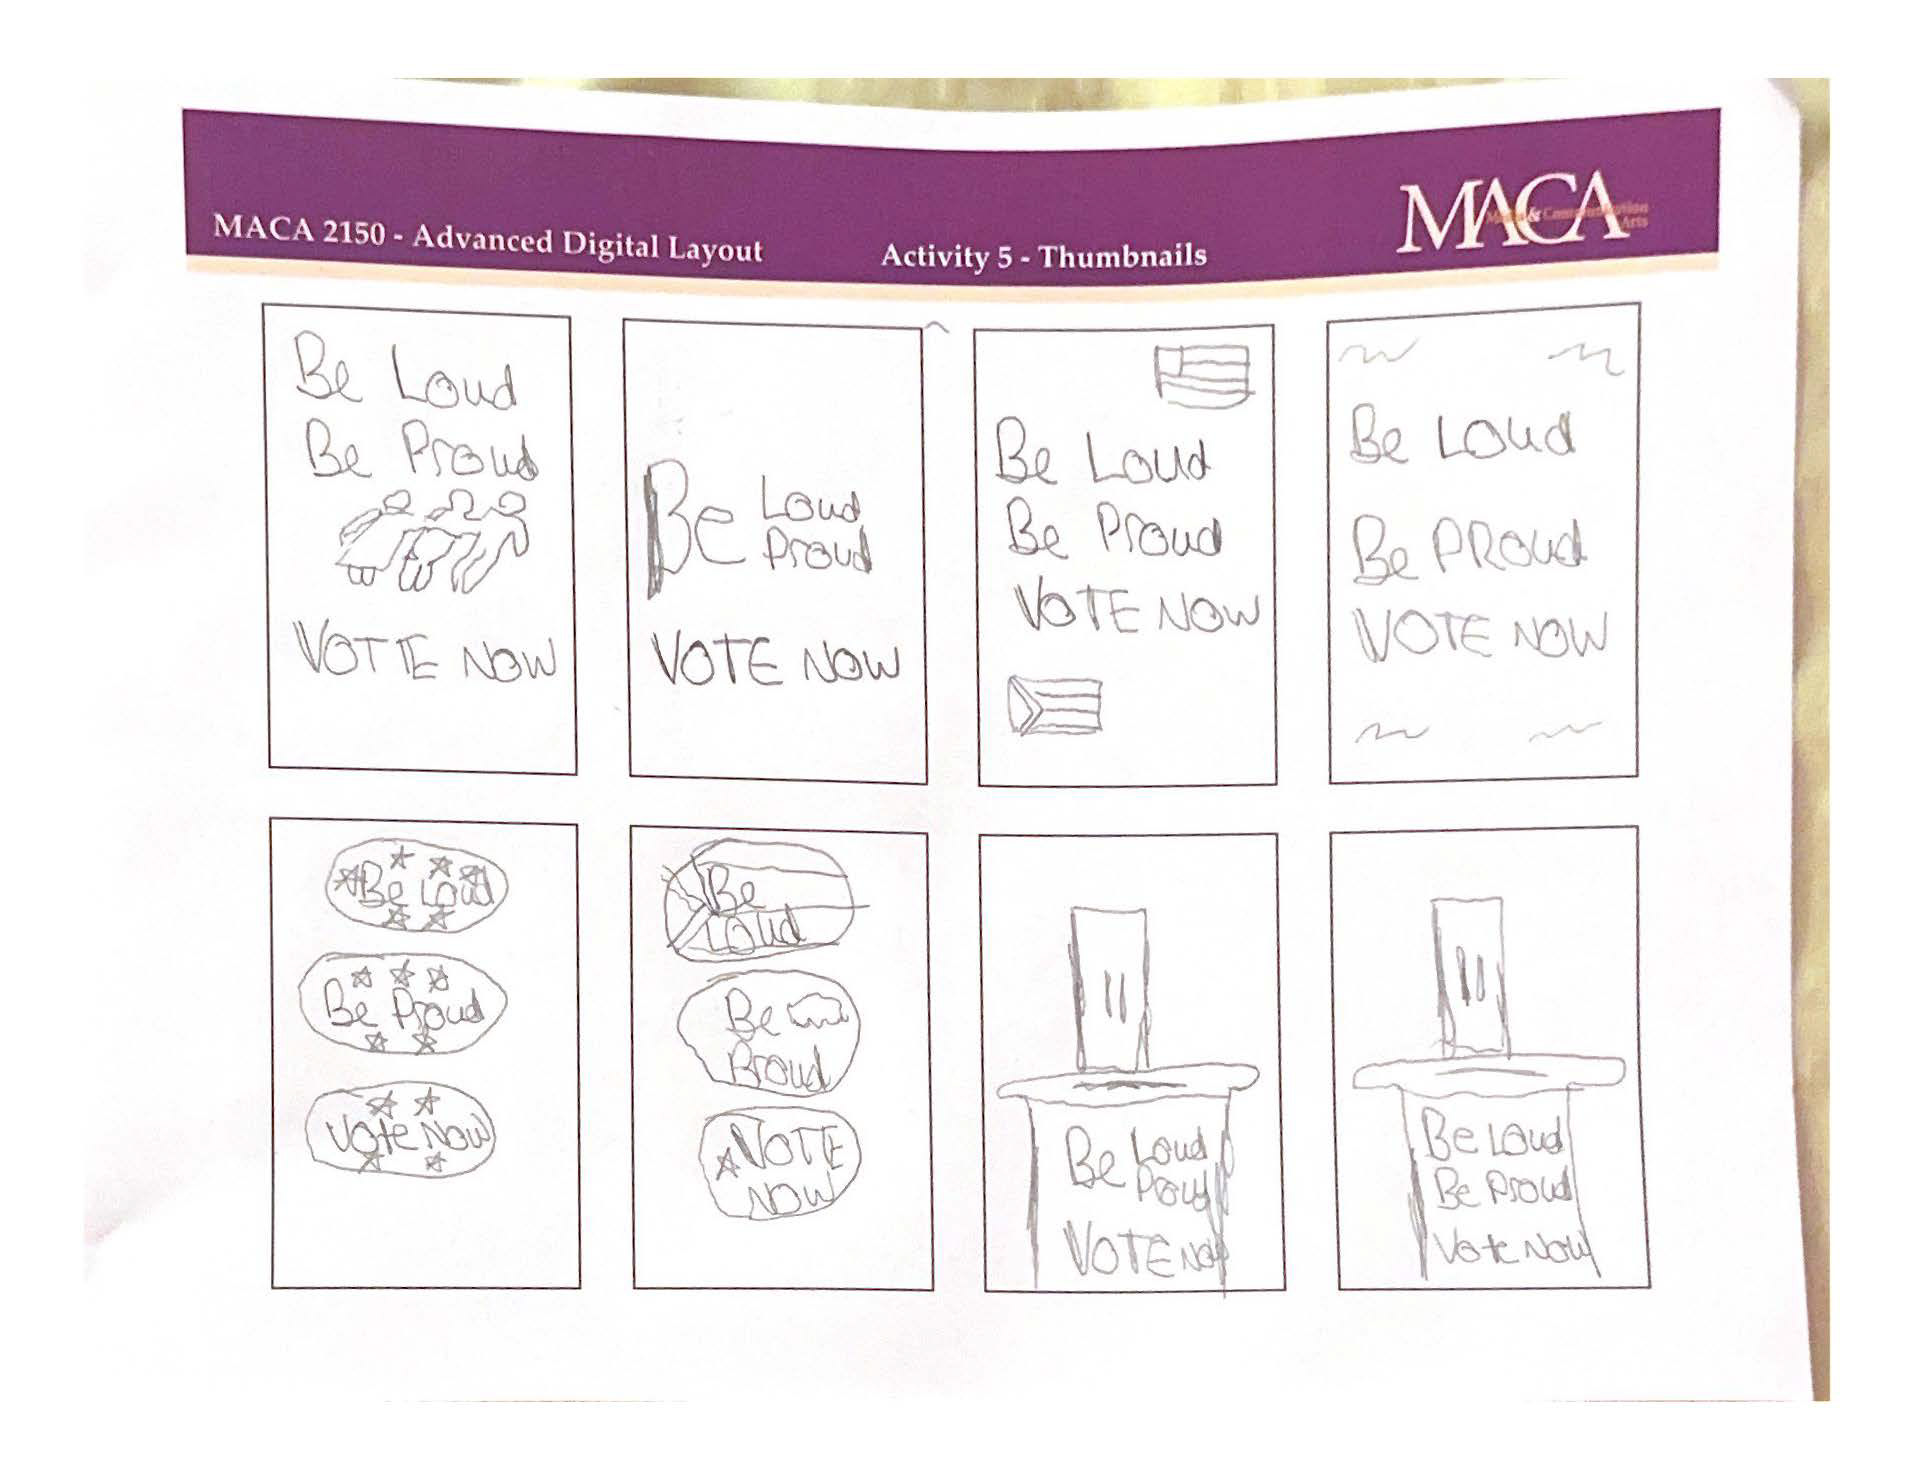 MACA 2150 - Advanced Digital Layout
Activity 5 - Thumbnails
MACA
Media & Communication
Arts
Be Loud
Be Proud
VOTE NOW
Be Loud
Proud
VOTE NOW
Be Loud
Be Proud
VOTE NOW
Be Loud
Be PRoud
VOTE NOW
Be Loud
Be Proud
Vote Now
Be
Loud
Be
Proud
VOTE
NOW
Be Loud
Proud
VOTE NOW
Be Loud
Be Proud
Vote Now